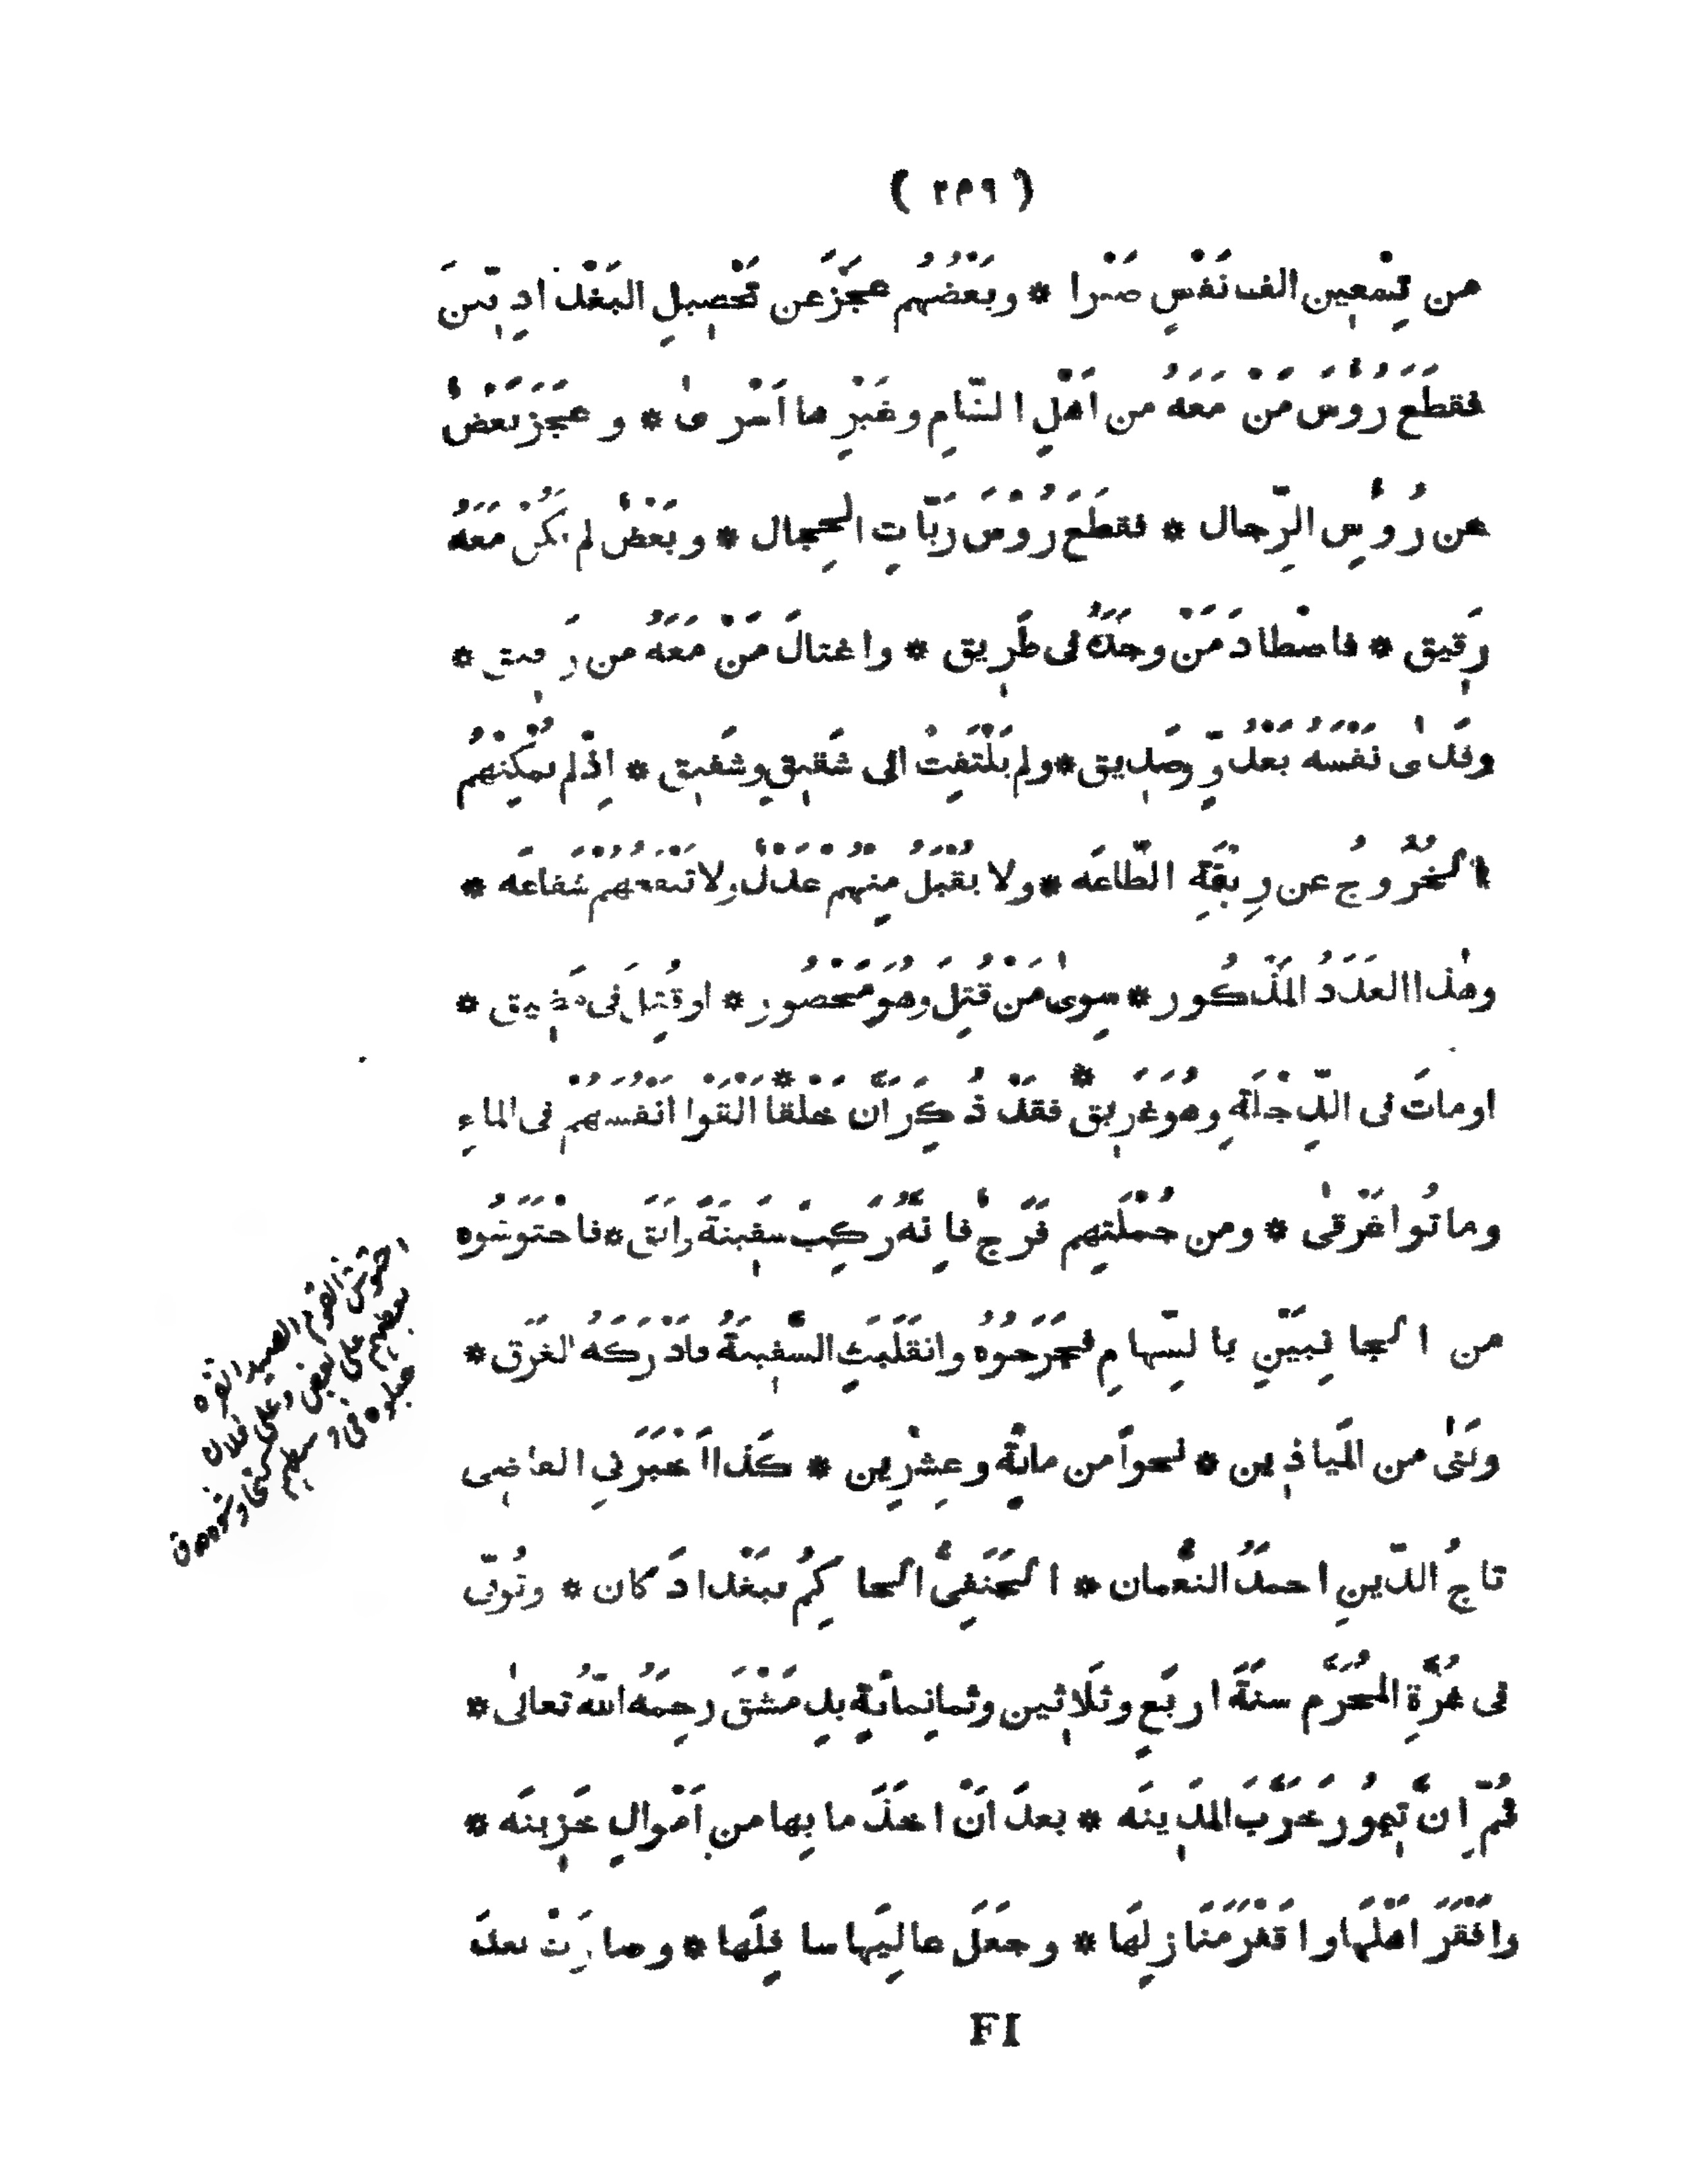 ( ٢٣٩ )
من تِسْعِين الف نَفْسٍ صَبْرا * وبَعْضُهُم عَجَزَ عن تَحْصِيلِ البَغْدَادِيّينَ
فقَطَعَ رُؤُسَ مَنْ مَعَهُ من اَهْلِ الشَّامِ وغَيْرِها اَسْرىٰ * وعَجَزَ بَعْضٌ
عن رُؤُسِ الرِّجال * فقَطَعَ رُؤُسَ رَبَّاتِ الحِجال * وبَعْضٌ لم يَكُنْ مَعَهُ
رَقِيق * فاصْطادَ مَنْ وجَدَهُ فى طَرِيق * واغتالَ مَنْ مَعَهُ من رَفِيق *
وفَدىٰ نَفْسَهُ بَعْدُوٍّ وصَدِيق * ولم يَلْتَفِتْ الى شَقِيقٍ وشَفِيق * اِذْ لم يُمْكِنْهُمُ
الخُرُوجُ عن رِبْقَةِ الطّاعَه * ولا يُقْبَلُ مِنْهُمْ عَدْلٌ ولا تَنْفَعُهُمْ شَفاعَه *
وهٰذا العَدَدُ المَذْكُور * سِوىٰ مَنْ قُتِلَ وهُوَ مَحْصُور * او قُتِلَ فى مَضِيق *
او ماتَ فى الدِّجْلَةِ وهُوَ غَرِيق * فقَدْ ذُكِرَ اَنَّ خَلْقًا * اَلْقَوْا اَنْفُسَهُمْ فى الماءِ
وماتُوا غَرْقىٰ * ومن جُمْلَتِهِم فَرَجٌ فاِنَّهُ رَكِبَ سَفِينَةً واَبَق * فاحْتَوَشُوه
من الجانِبَيْنِ بالسِّهامِ فجَرَحُوُه وانقَلَبَتِ السَّفِينَةُ فاَدْرَكَهُ الغَرَق *
وبَنىٰ من المَيَاذِين * نحواً من مائةٍ وعِشْرِين * كَذا اَخْبَرَنِي القاضِى
تاجُ الدّينِ احمدُ النُعْمان * الحَنَفِىُّ الحاكِمُ ببَغْدادَ كان * وتُوُفّى
فى غُرَّةِ المُحَرَّم سنةَ اربَعٍ وثَلاثِين وثمانِمائَةٍ بدِمَشْقَ رحِمَهُ اللهُ تعالىٰ *
ثُمَّ اِنَّ تِيمُورَ خَرَّبَ المَدِينَه * بعدَ اَنْ اخَذَ ما بِها من اَمْوالٍ خَزِينَه *
وافْقَرَ اهْلَها واقفَرَ مَنَازِلَها * وجَعَلَ عالِيَها سافِلَها * وصارَتْ بعدَ
احتوش القوم الصيد انفره
بعضهم على بعض وعلى فلان
جعلوه فى وسطهم كتحاوشوه ق
FI